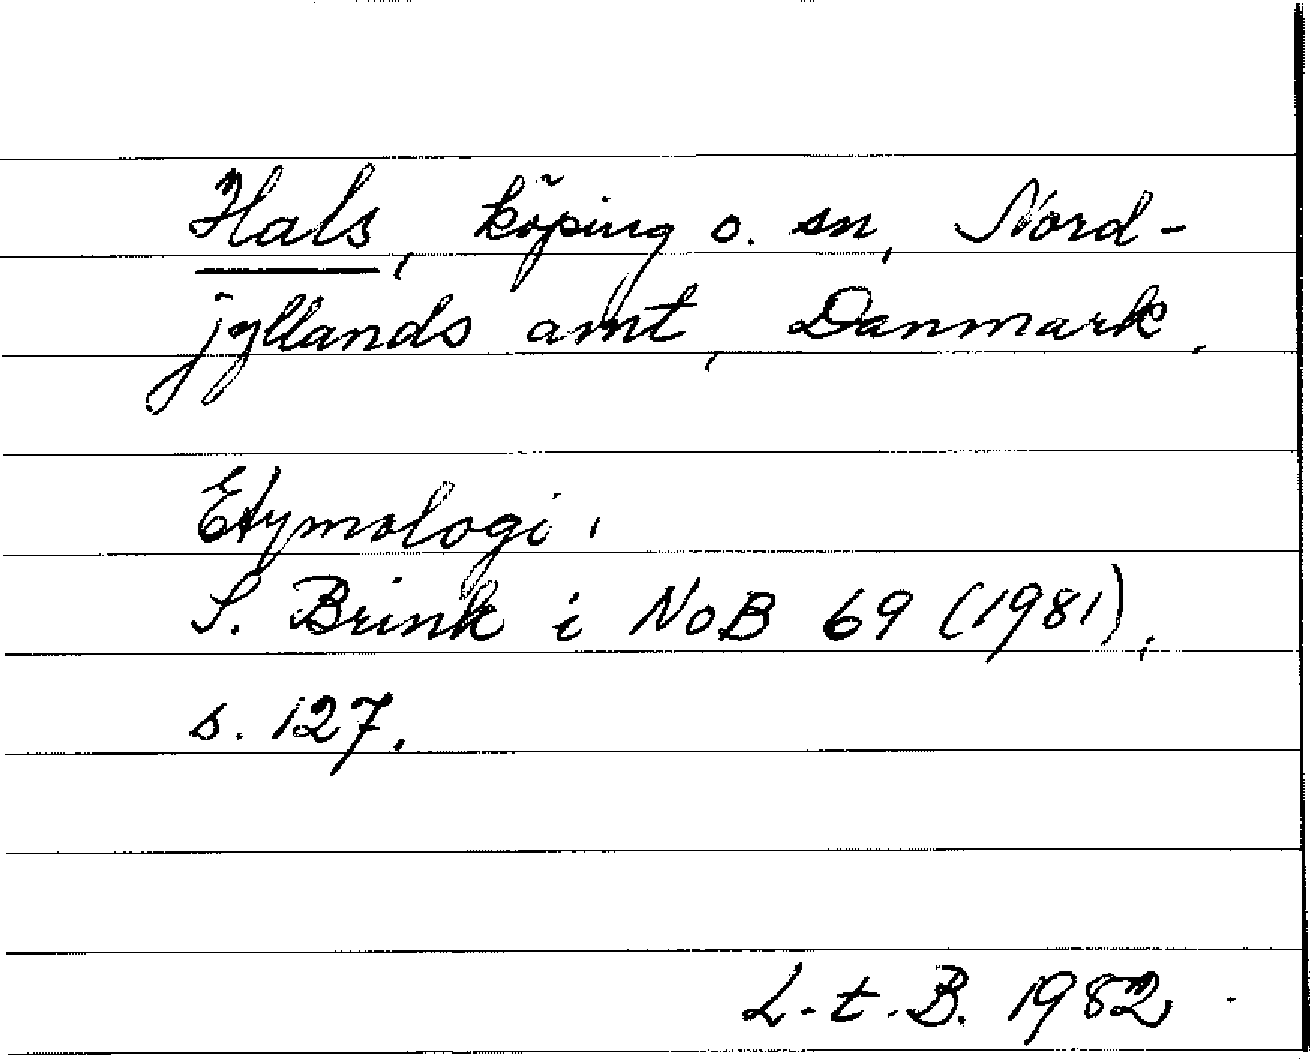 Hals, köping o. sn, Nord-
jyllands amt, Danmark.
Etymologi:
S. Brink i NoB 69 (1981),
s. 127.
L.t.B. 1982